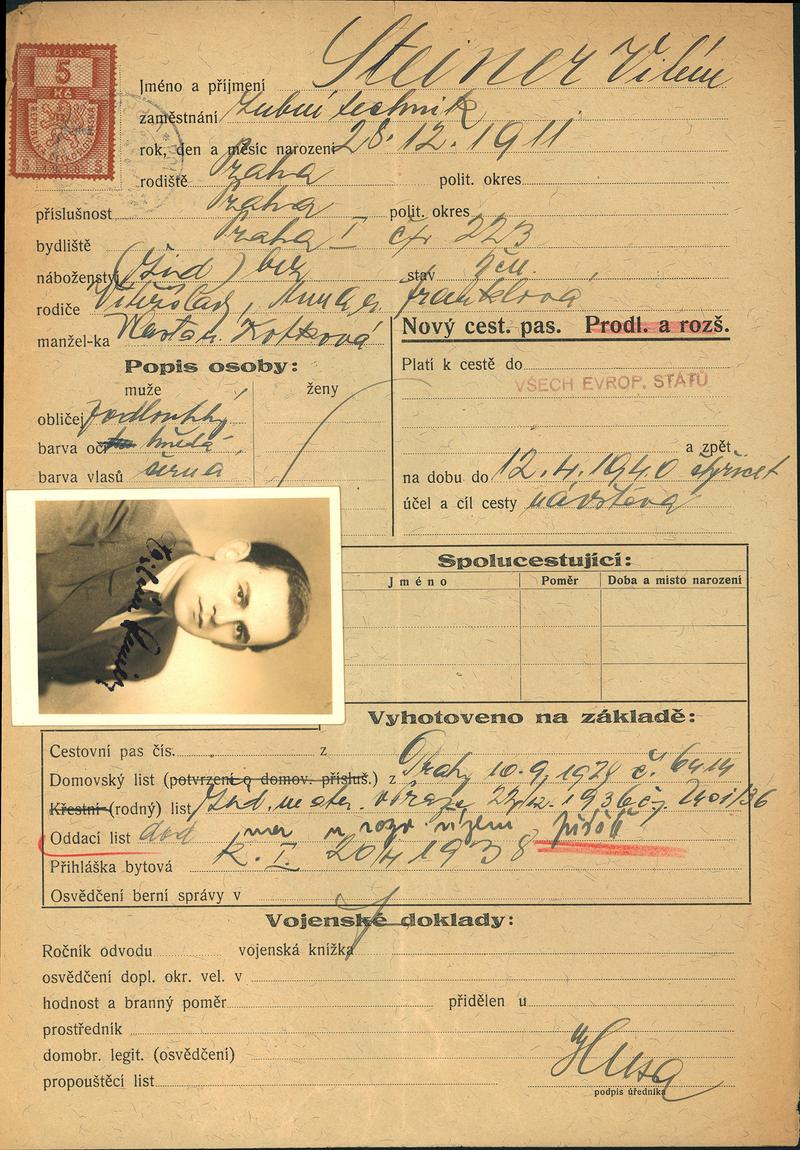 KOLEK
5
Kč
Jméno a příjmení Steiner Vilém
zaměstnání zubní technik
rok, den a měsíc narození 28.12.1911
rodiště Praha polit. okres
příslušnost Praha polit. okres
bydliště Praha I čp 223
náboženství (žid) bez stav žen.
rodiče Vítězslav, Anna r. Franklová
manžel-ka Vlasta r. Kotková
Nový cest. pas. Prodl. a rozš.
Popis osoby:
muže ženy
Platí k cestě do
VŠECH EVROP. STÁTŮ
obličej podlouhlý
barva očí hnědá
barva vlasů černá
a zpět
na dobu do 12.4.1940
účel a cíl cesty návštěva
Vilém Steiner
Spolucestující:
Jméno Poměr Doba a místo narození
Vyhotoveno na základě:
Cestovní pas čís. z
Domovský list (potvrzení o domov. přísluš.) z Prahy 10.9.1928 č.
Křestní (rodný) list žid. v Praze 1936
Oddací list
Přihláška bytová 1938
Osvědčení berní správy v
Vojenské doklady:
Ročník odvodu vojenská knížka
osvědčení dopl. okr. vel. v
hodnost a branný poměr přidělen u
prostředník
domobr. legit. (osvědčení)
propouštěcí list
Husa
podpis úředníka